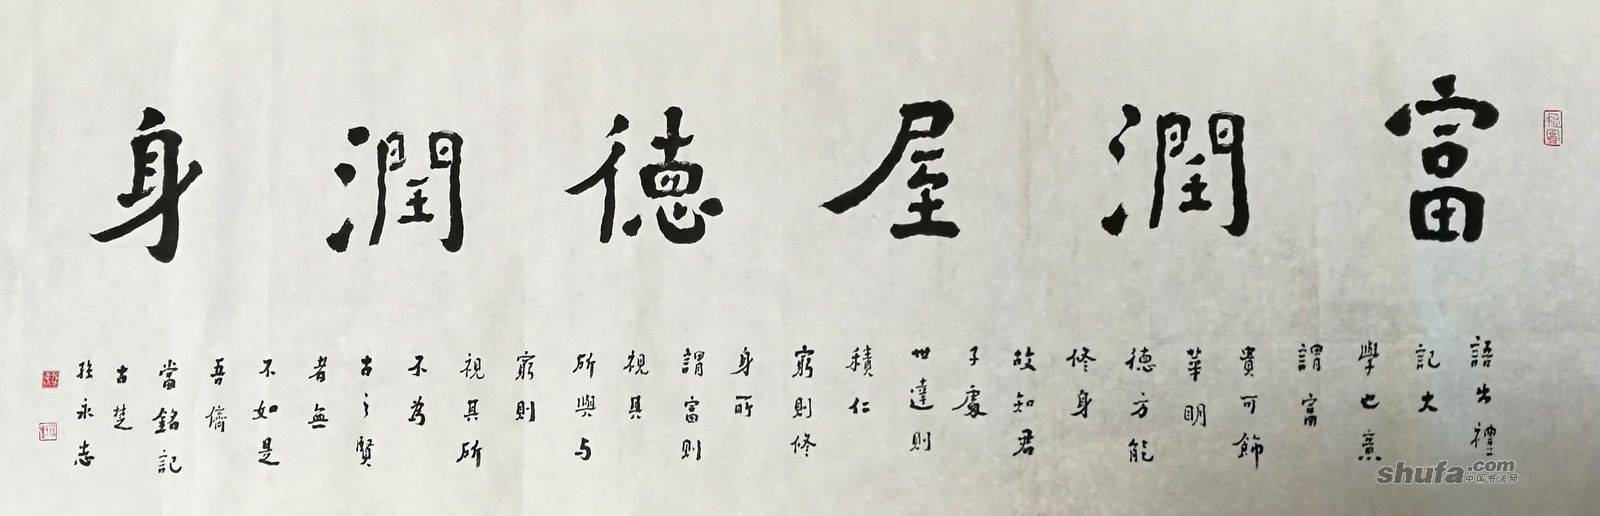 富潤屋德潤身
語出禮
記大
學也意
謂富
貴可飾
華明
德方能
修身
故知君
子處
世達則
積仁
窮則修
身所
謂富則
視其
所與与
窮則
視其所
不為
古之賢
者無
不如是
吾儕
當銘記
古楚
孫永志
shufa.com
中国书法网